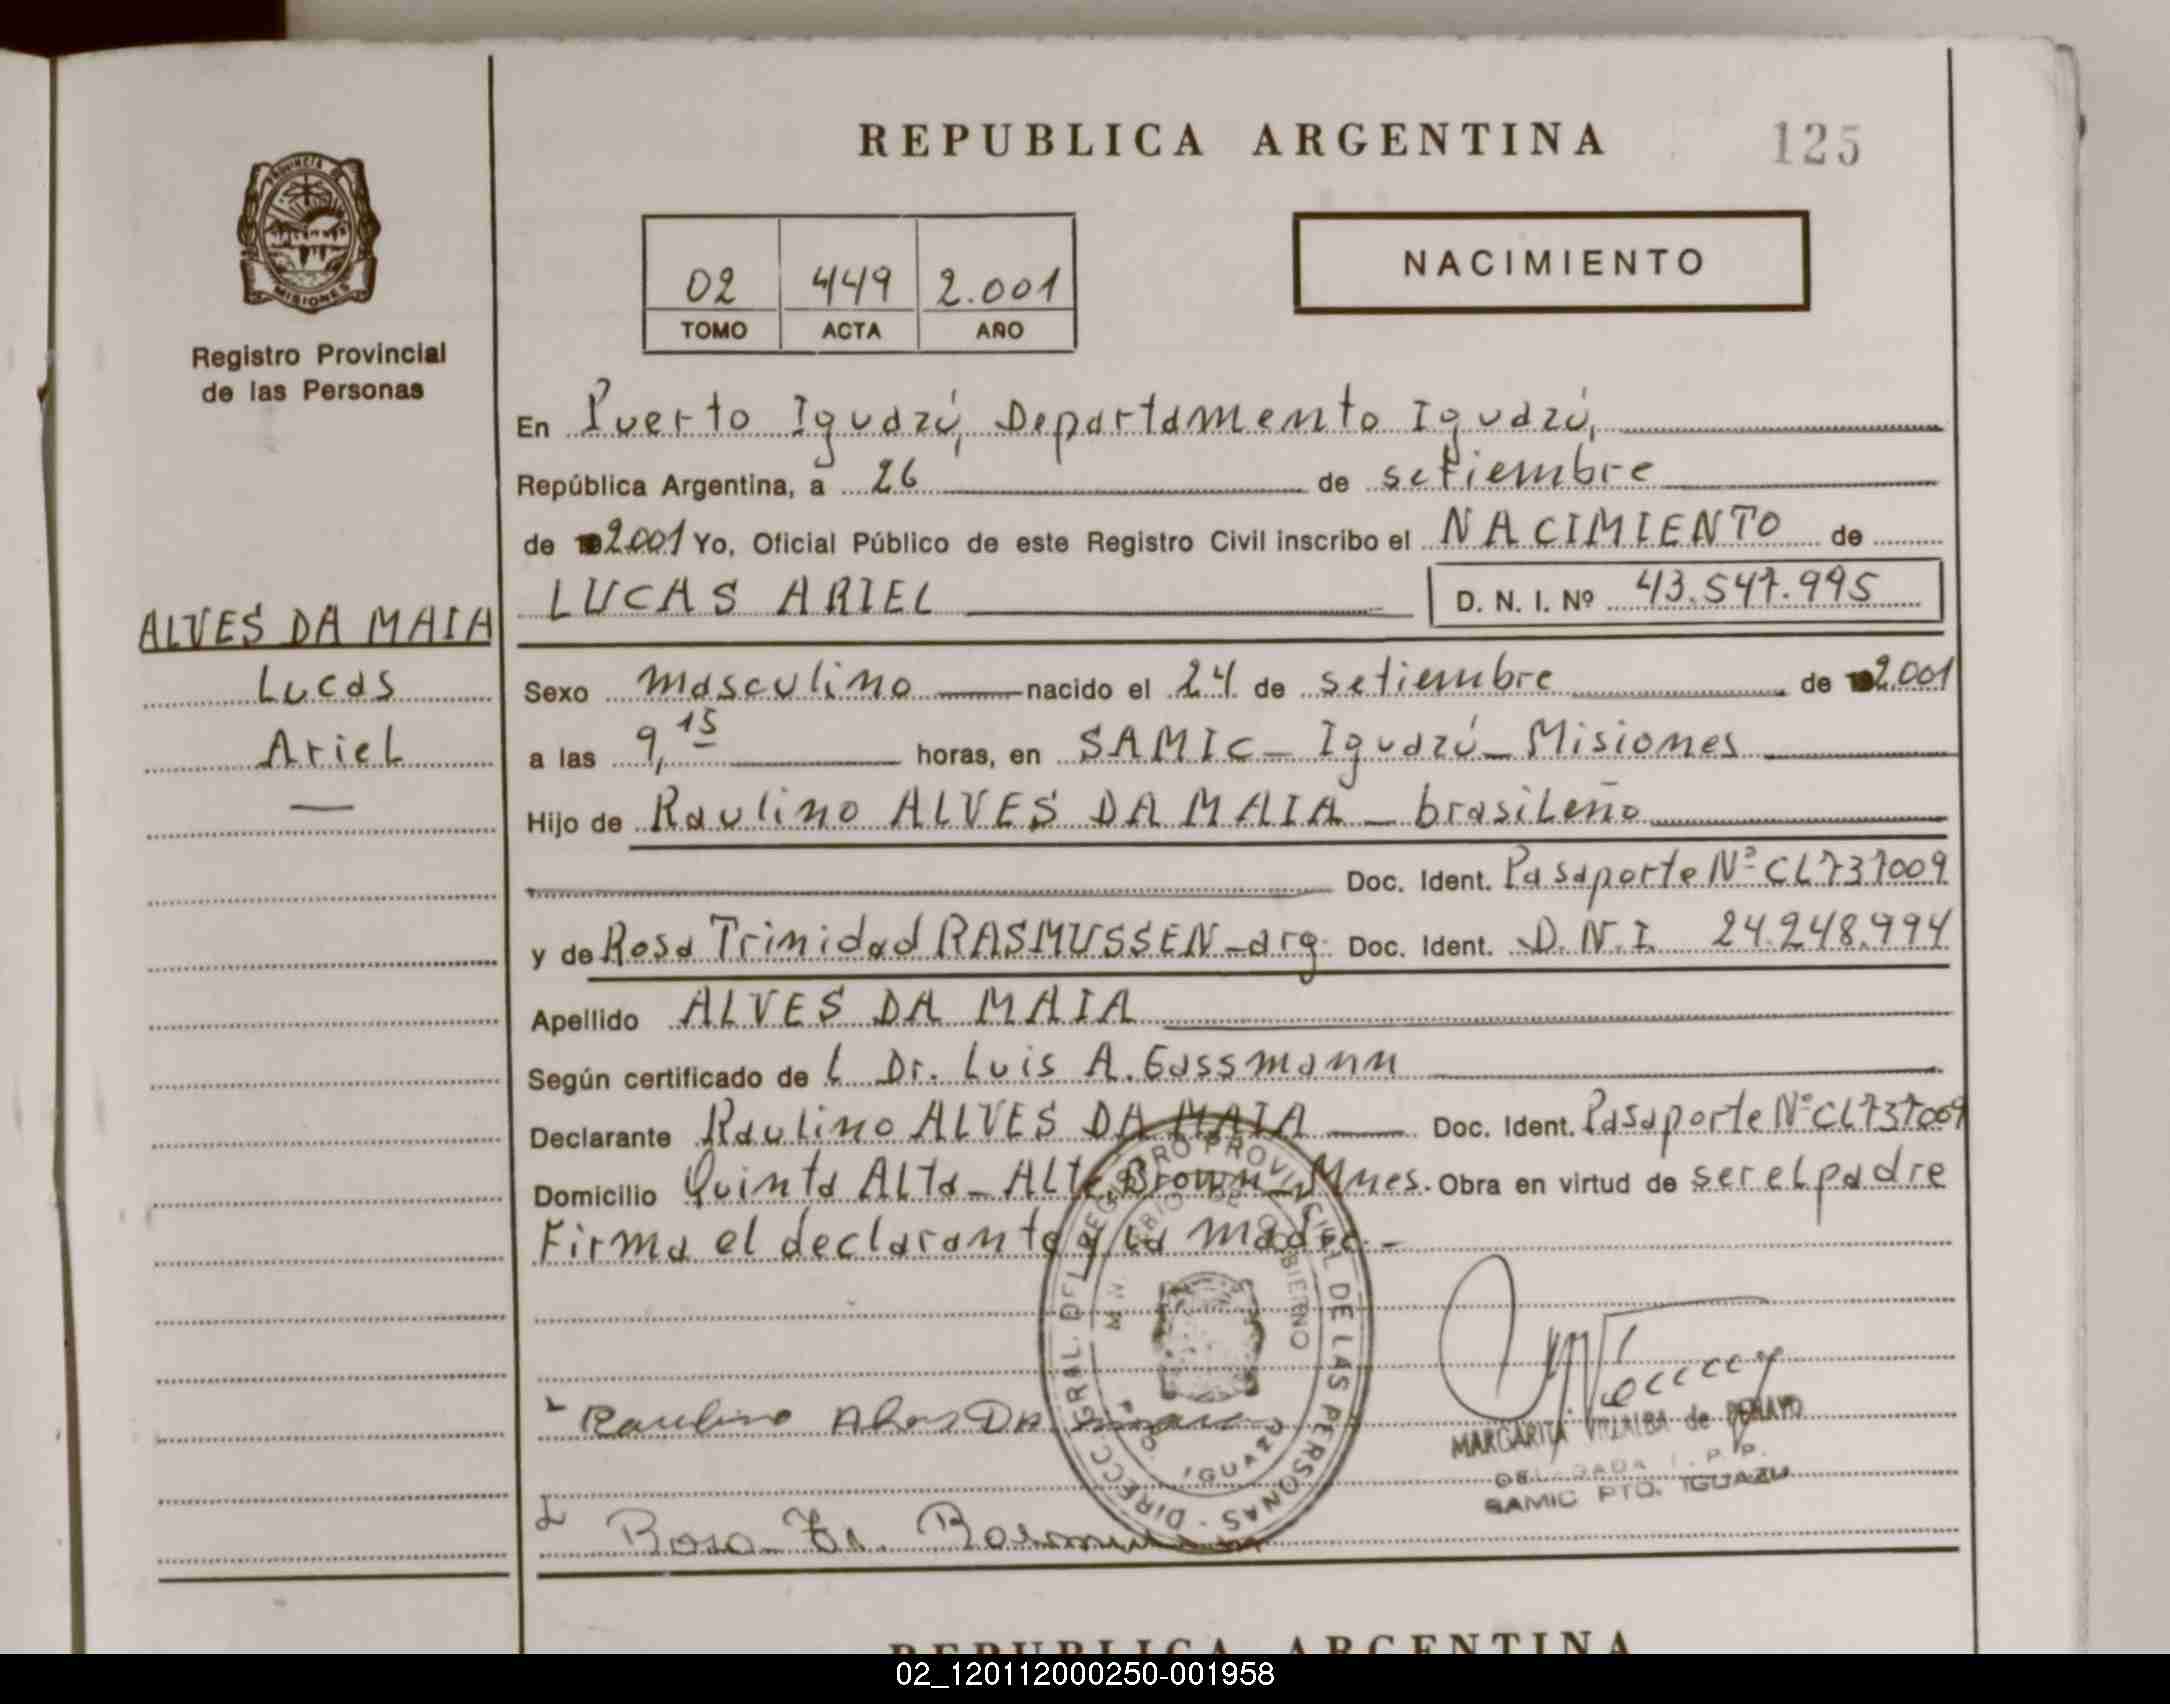 REPUBLICA ARGENTINA
125
PROVINCIA DE
MISIONES
Registro Provincial
de las Personas
NACIMIENTO
02 449 2.001
TOMO ACTA AÑO
En Puerto Iguazú, Departamento Iguazú,
República Argentina, a 26 de setiembre
de 2.001 Yo, Oficial Público de este Registro Civil inscribo el NACIMIENTO de
LUCAS ARIEL D. N. I. Nº 43.547.995
ALVES DA MAIA
Lucas
Ariel
Sexo masculino nacido el 24 de setiembre de 2.001
a las 9,15 horas, en SAMIC - Iguazú - Misiones
Hijo de Raulino ALVES DA MAIA - brasileño
Doc. Ident. Pasaporte Nº CL737009
y de Rosa Trinidad RASMUSSEN - arg. Doc. Ident. D.N.I. 24.248.994
Apellido ALVES DA MAIA
Según certificado de l Dr. Luis A. Gassmann
Declarante Raulino ALVES DA MAIA Doc. Ident. Pasaporte Nº CL737009
Domicilio Quinta Alta - Alte. Brown - Mnes. Obra en virtud de ser el padre
Firma el declarante y la madre -
DIRECC. GRAL. DEL REGISTRO PROVINCIAL DE LAS PERSONAS
MINISTERIO DE GOBIERNO
IGUAZU
Raulino Alves Da Maia
MARGARITA VILLALBA de PERAYO
DELEGADA R.P.P.
SAMIC PTO. IGUAZU
Rosa Tr. Rasmussen
REPUBLICA ARGENTINA
02_120112000250-001958